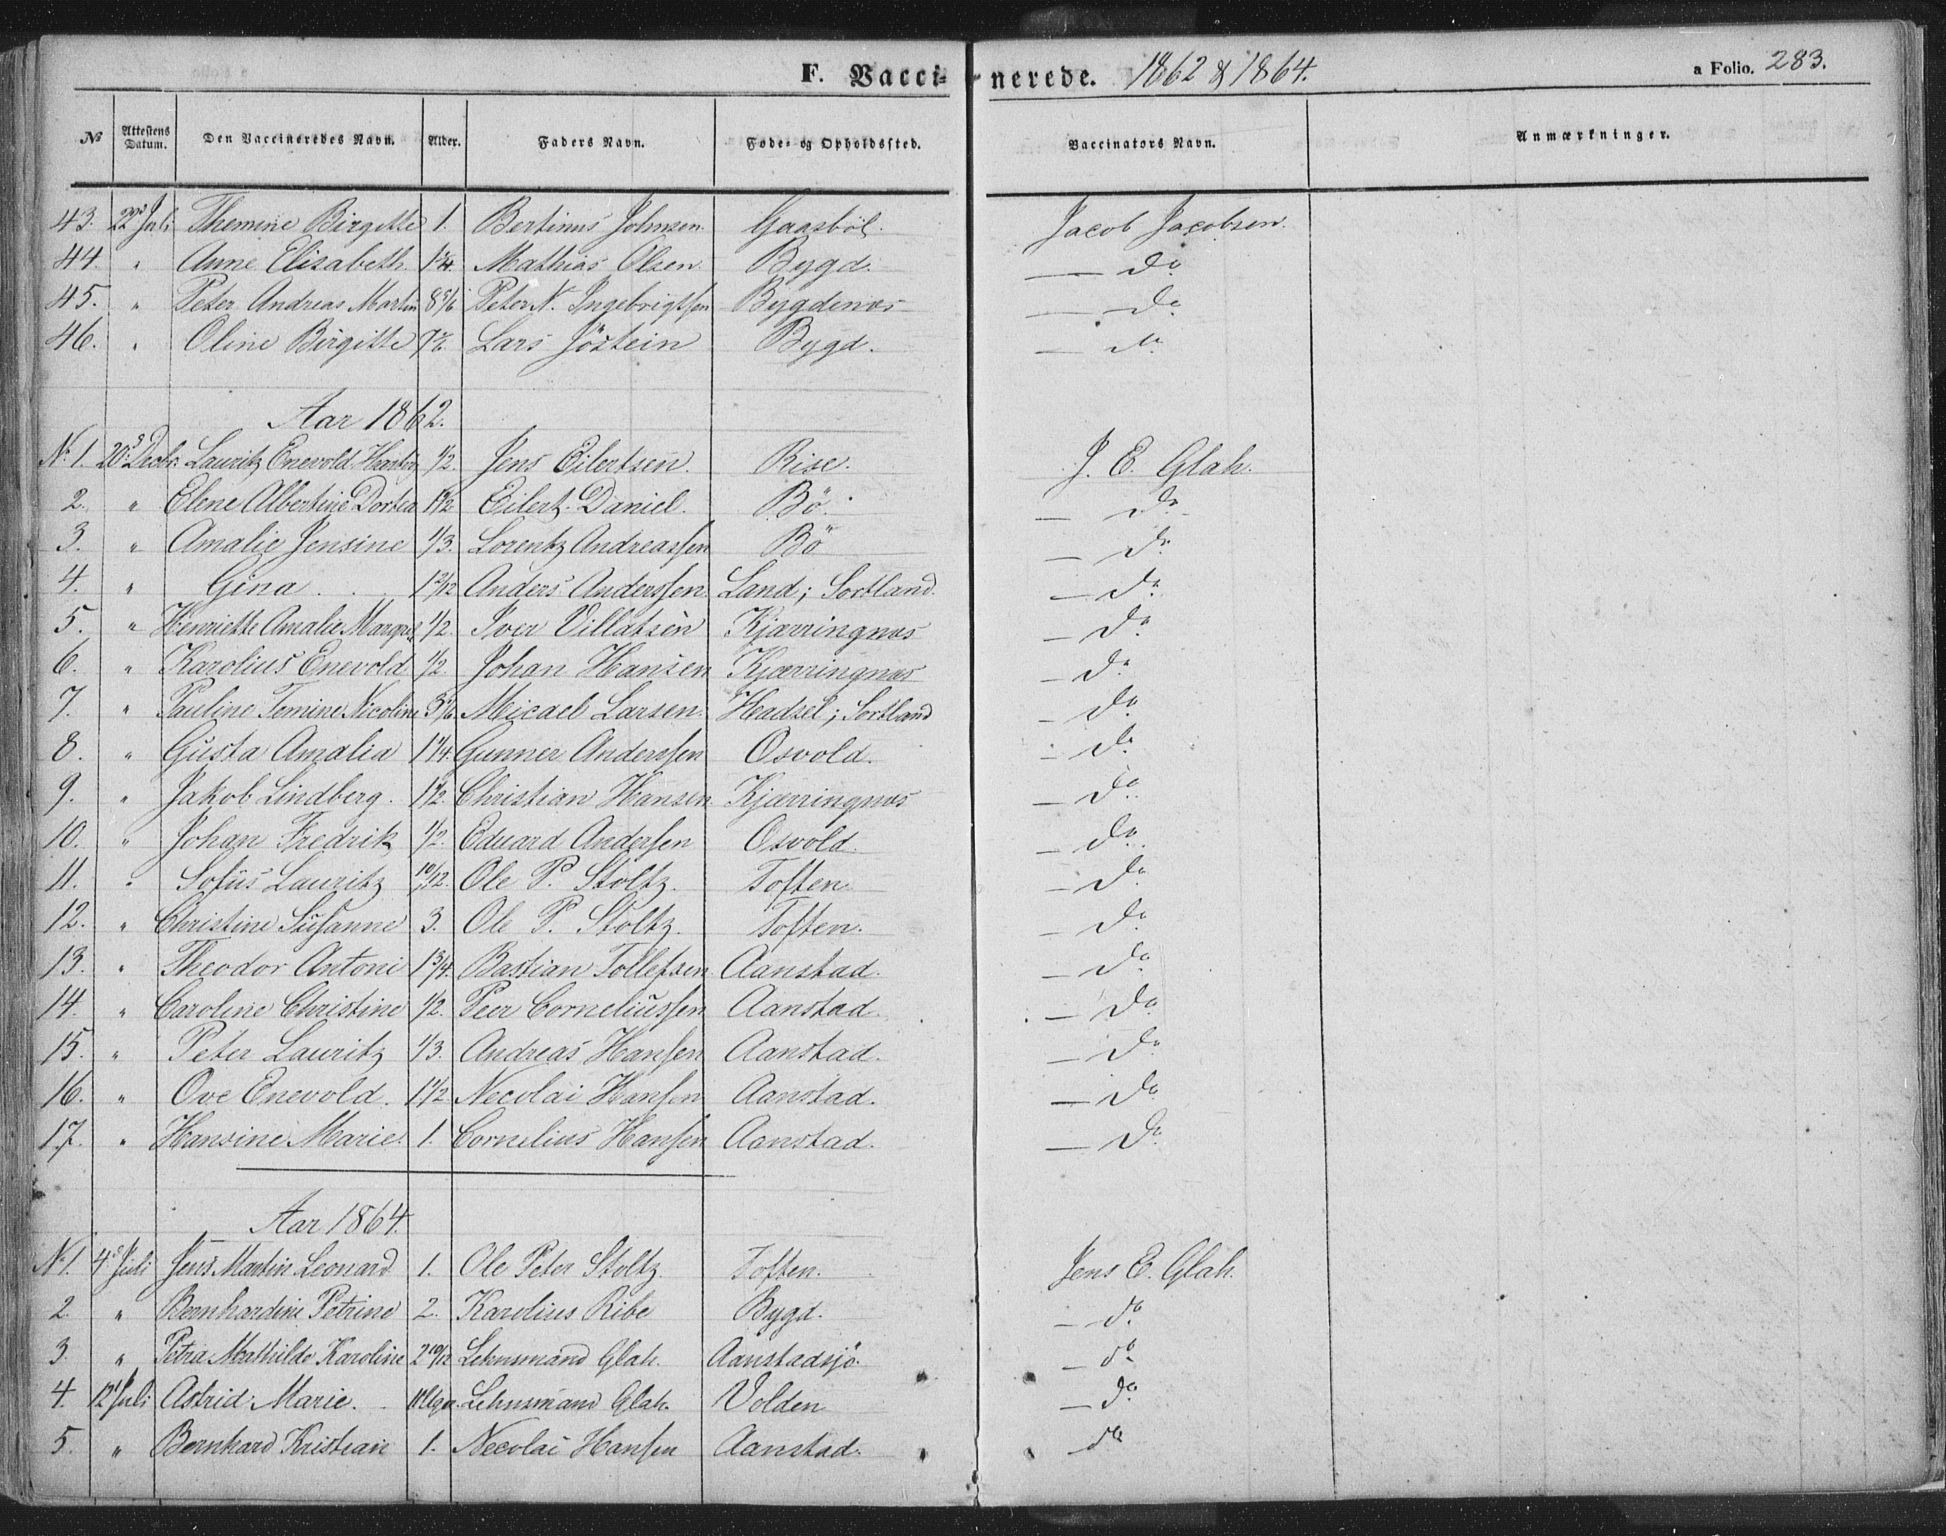 F. Vaccinerede. 1862 & 1864. a Folio. 283.
No Attestens Datum. Den Vaccineredes Navn. Alder. Faders Navn. Føde- og Opholdssted. Vaccinators Navn. Anmærkninger.
43. 22de Juli Themine Birgitte 1. Bertinus Johnsen Gaasböl. Jacob Jacobsen.
44. " Anne Elisabeth Mathias Olsen Bygd. — do
45. " Peter Andreas Martin 8 5/6 Peter N. Ingebrigtssen Bygdenæs — do
46. " Oline Birgitte Lars Jöstein Bygd. — do
Aar 1862.
No 1. 20de Decbr. Lauritz Enevold 1/2. Jens Eilertsen. Rise. J. E. Glah.
2. " Elene Albertine Dortea 1 1/2 Eilert Daniel. Bö. — do
3. " Amalie Jensine 1/3. Lorentz Andreassen Bö — do
4. " Gina Anders Anderssen Land; Sortland. — do
5. " Henriette Amalie 1/2. Iver Villatsen Kjærringnæs — do
6. " Karolius Enevold 1/2 Johan Hansen Kjærringnæs — do
7. " Pauline Temine Nicoline Micael Larsen. Hadsel; Sortland — do
8. " Gusta Amalia 1 1/4. Gunner Anderssen Osvold. — do
9. " Jakob Lindberg. 1 1/2. Christian Hansen Kjærringnæs — do
10. " Johan Fredrik 1/2. Eduard Anderssen Osvold. — do
11. " Sofus Lauritz 10/12. Ole P. Stoltz. Toften. — do
12. " Christine Susanne 3. Ole P. Stoltz. Toften. — do
13. " Theodor Antoni 1 3/4. Bastian Tollefsen Aanstad. — do
14. " Caroline Christine 1/2. Peer Corneliussen Aanstad. — do
15. " Peter Lauritz 1/3. Andreas Hansen Aanstad. — do
16. " Ove Enevold. 1 1/2 Necolai Hansen Aanstad. — do
17. " Hansine Marie. 1. Cornelius Hansen Aanstad. — do
Aar 1864.
No 1. 4de Juli Jens Martin Leonard 1. Ole Peter Stoltz Toften. Jens E. Glah.
2. " Bernhardine Petrine 2. Karolius Ribe Bygd. — do
3. " Petra Mathilde Karoline 2 10/12 Lehnsmand Glah. Aanstadsjö. — do
4. 12te Juli Astrid Marie. Lehnsmand Glah. Volden — do
5. " Bernhard Kristian 1. Necolai Hansen Aanstad. — do